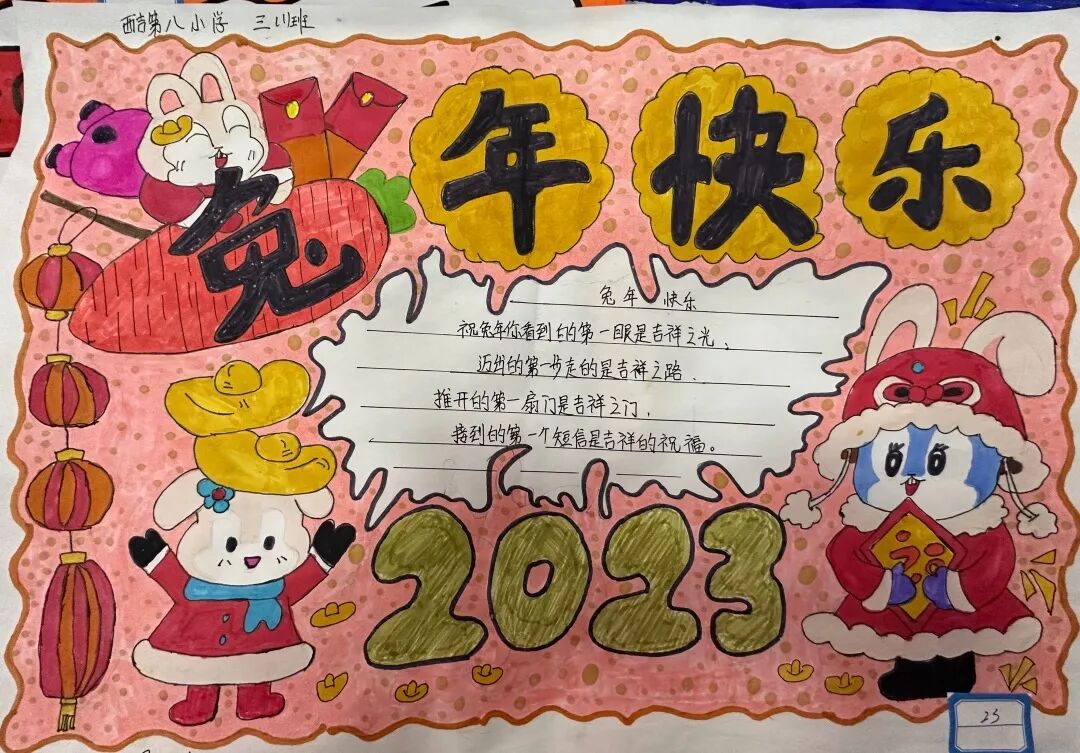 第八小学 三(1)班
兔年快乐
兔年 快乐
祝兔年你看到的第一眼是吉祥之光、
迈出的第一步走的是吉祥之路、
推开的第一扇门是吉祥之门、
接到的第一个短信是吉祥的祝福。
2023
福
23